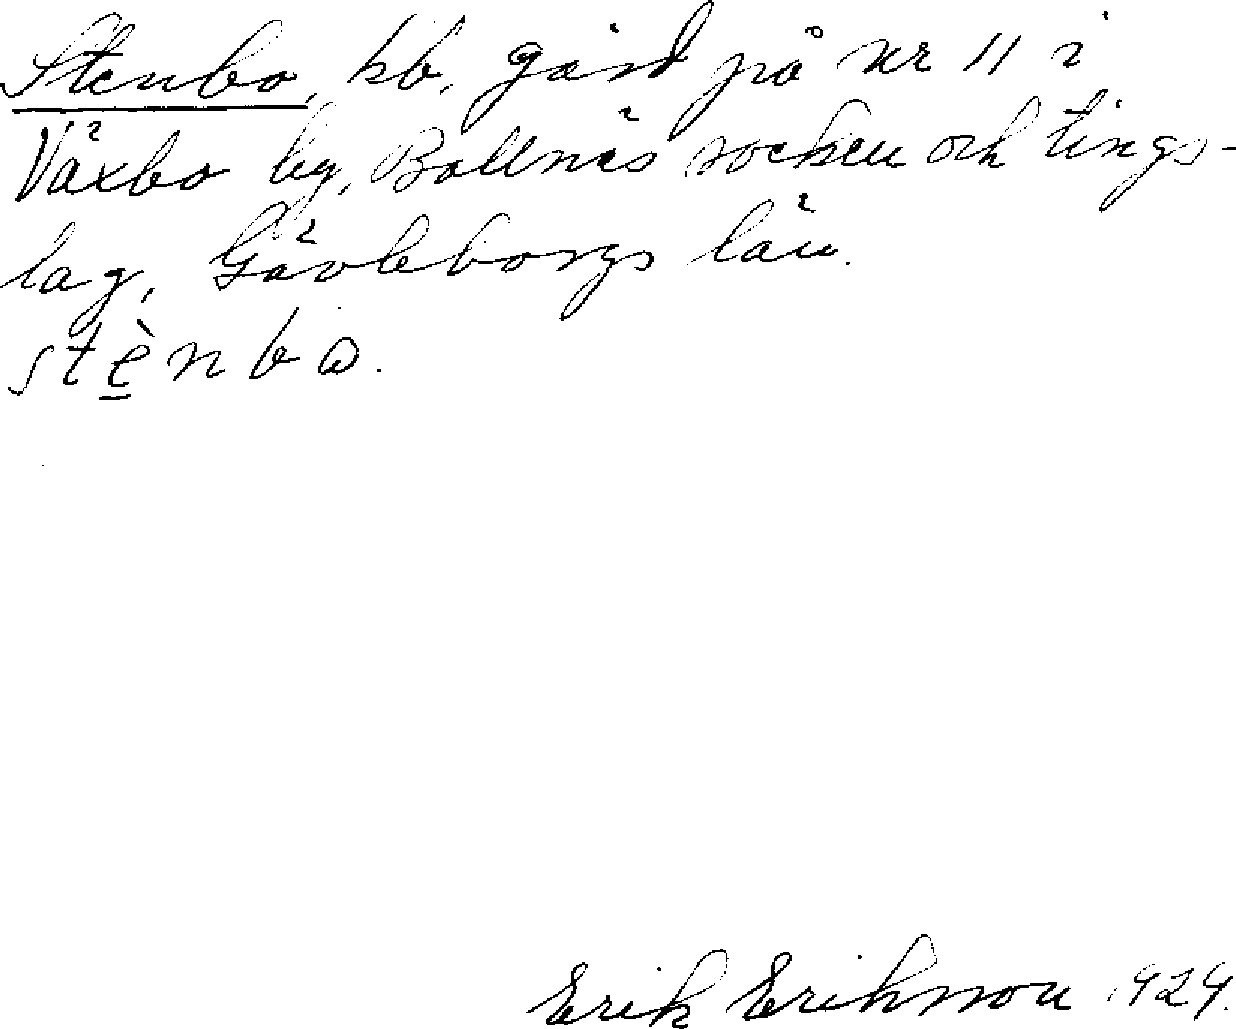 Stenbo, kb, gård på nr 11 i
Växbo by, Bollnäs socken och tings-
lag, Gävleborgs län.
stè̠nbω.
Erik Eriksson 1929.